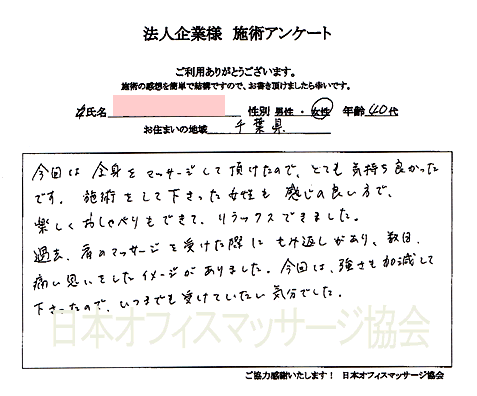 法人企業様 施術アンケート
ご利用ありがとうございます。
施術の感想を簡単で結構ですので、お書き頂けましたら幸いです。
氏名 性別 男性・女性 年齢 40代
お住まいの地域 千葉県
今回は全身をマッサージして頂けたので、とても気持ち良かった
です。施術をして下さった女性も感じの良い方で、
楽しくおしゃべりもできて、リラックスできました。
過去、肩のマッサージを受けた際にもみ返しがあり、数日、
痛い思いをしたイメージがありました。今回は、強さも加減して
下さったので、いつまでも受けていたい気分でした。
日本オフィスマッサージ協会
ご協力感謝いたします！ 日本オフィスマッサージ協会